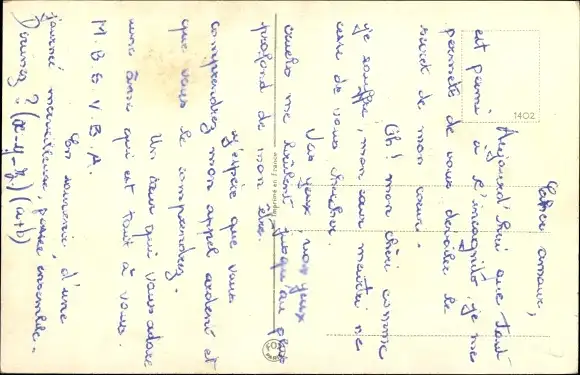 Chéri amour,
Aujourd'hui que tout
est permi à l'incognito, je me
permets de vous dévoiler le
secret de mon cœur.
Oh! mon chéri comme
je souffre, mon cœur meurtri ne
cesse de vous chercher.
Vos yeux, vos yeux
cruels me brûlent jusqu'au plus
profond de mon être.
J'espère que vous
comprendrez mon appel ardent et
que vous le comprendrez.
Un cœur qui vous adore
une âme qui est tout à vous.
M. B. G. V. B. A.
En souvenir, d'une
journée merveilleuse, passée ensemble.
Devinez? (x-y-z) (a+b)
1402
Imprimé en France